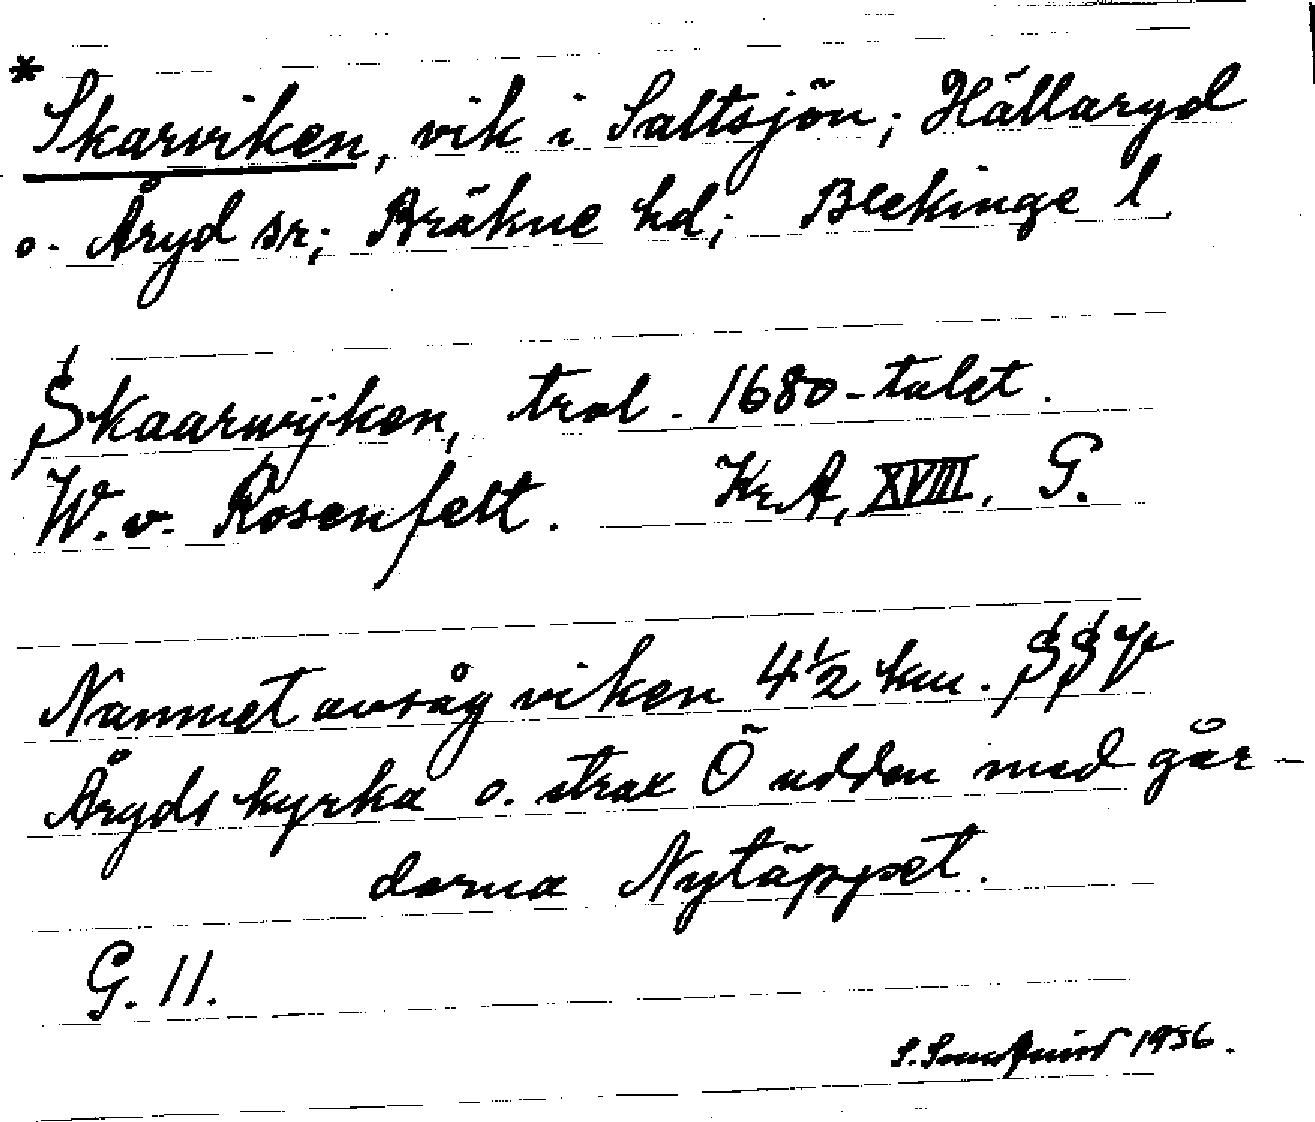 * Skarviken, vik i Saltsjön; Hällaryd
o. Åryd sr; Bräkne hd; Blekinge l.
Skaarwijken, trol. 1680-talet.
W. v. Rosenfelt. KrA, XVIII, G.
Namnet avsåg viken 4½ km. SSV
Åryds kyrka o. strax Ö udden med går-
darna Nytäppet.
G. 11.
S. 1956.